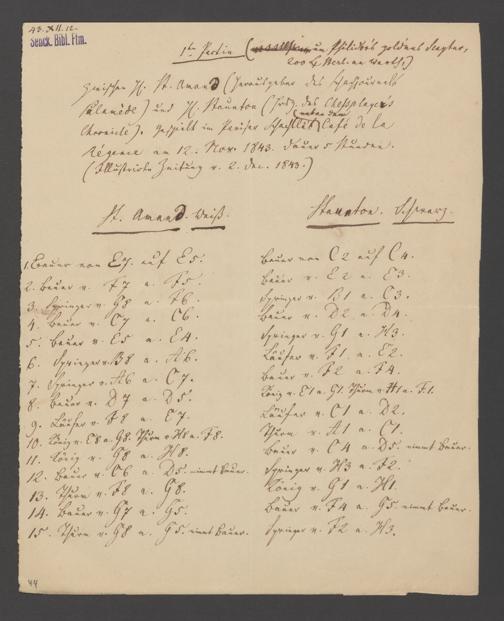 43.XII.12.
Senck. Bibl. Ffm.
1te Partie (um Philidor's goldnes Scepter,
200 £ Sterl. an Werth.)
zwischen H. St. Amand (Herausgeber des Schachjournals
Palamède) und H. Staunton (Hrsg. des Chessplayers
Chronicle). Gespielt im Pariser Café de la
Régence am 12. Nov. 1843. Dauer 5 Stunden.
(Illustrirte Zeitung v. 2. Dec. 1843.)
St. Amand. Weiß. Staunton. Schwarz.
1. Bauer von E7. auf E5. Bauer von C2 auf C4.
2. Bauer v. F7 a. F5. Bauer v. E2 a. E3.
3. Springer v. G8 a. F6. Springer v. B1 a. C3.
4. Bauer v. C7 a. C6. Bauer v. D2 a. D4.
5. Bauer v. E5 a. E4. Springer v. G1 a. H3.
6. Springer v. B8 a. A6. Läufer v. F1 a. E2.
7. Springer v. A6 a. C7. Bauer v. F2 a. F4.
8. Bauer v. D7 a. D5. König v. E1 a. G1. Thurm v. H1 a. F1.
9. Läufer v. F8 a. E7. Läufer v. C1 a. D2.
10. König v. E8 a. G8. Thurm v. H8 a. F8. Thurm v. A1 a. C1.
11. König v. G8 a. H8. Bauer v. C4 a. D5. nimmt Bauer.
12. Bauer v. C6 a. D5. nimmt Bauer. Springer v. H3 a. F2.
13. Thurm v. F8 a. G8. König v. G1 a. H1.
14. Bauer v. G7 a. G5. Bauer v. F4 a. G5 nimmt Bauer.
15. Thurm v. G8 a. G5. nimmt Bauer. Springer v. F2 a. H3.
44